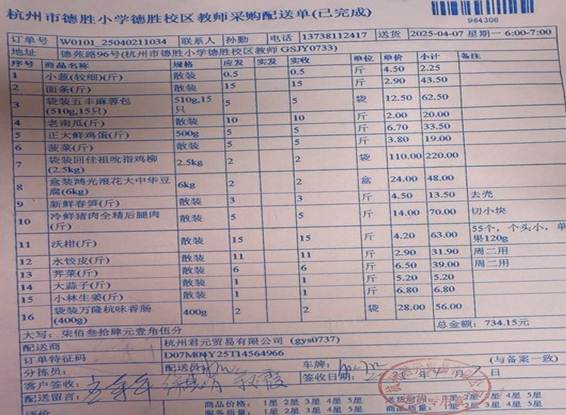 杭州市德胜小学德胜校区教师采购配送单(已完成)
964306
订单号 W0101_25040211034 联系人 孙勤 电话 13738112417 送货 2025-04-07 星期一 6:00-7:00
地址 德苑路96号(杭州市德胜小学德胜校区教师 GSJY0733)
序号 商品名称 规格 应发 实发 实收 单位 单价 小计 备注
1 小葱(较细)(斤) 散装 0.5 0.5 斤 4.50 2.25
2 面条(斤) 散装 15 15 斤 2.90 43.50
3 袋装五丰麻蓉包(510g,15只) 510g,15只 5 5 袋 12.50 62.50
4 老南瓜(斤) 散装 10 10 斤 2.00 20.00
5 正大鲜鸡蛋(斤) 500g 5 5 斤 6.70 33.50
6 菠菜(斤) 散装 5 5 斤 3.80 19.00
7 袋装回佳祖吮指鸡柳(2.5kg) 2.5kg 2 2 袋 110.00 220.00
8 盒装鸿光滚花大中华豆腐(6kg) 6kg 2 2 盒 24.00 48.00
9 新鲜春笋(斤) 散装 3 3 斤 4.50 13.50 去壳
10 冷鲜猪肉全精后腿肉(斤) 散装 5 5 斤 14.00 70.00 切小块
11 沃柑(斤) 散装 15 15 斤 4.20 63.00 55个,个头小,单果120g
12 水饺皮(斤) 散装 11 11 斤 2.90 31.90 周二用
13 荠菜(斤) 散装 6 6 斤 6.50 39.00 周二用
14 大蒜子(斤) 散装 1 1 斤 5.20 5.20
15 小林生姜(斤) 散装 1 1 斤 6.80 6.80
16 袋装万隆杭味香肠(400g) 400g 2 2 袋 28.00 56.00
大写:柒佰叁拾肆元壹角伍分 总金额:734.15元
配送商 杭州君元贸易有限公司 (gys0737)
订单特征码 D07M04Y25T14564966
分拣员: 配送员: 车牌: (与备案一致)
客户签收: 签收日期:
配送留言: 商品价格: 1星 2星 3星 4星 5星
评价 服务质量: 1星 2星 3星 4星 5星